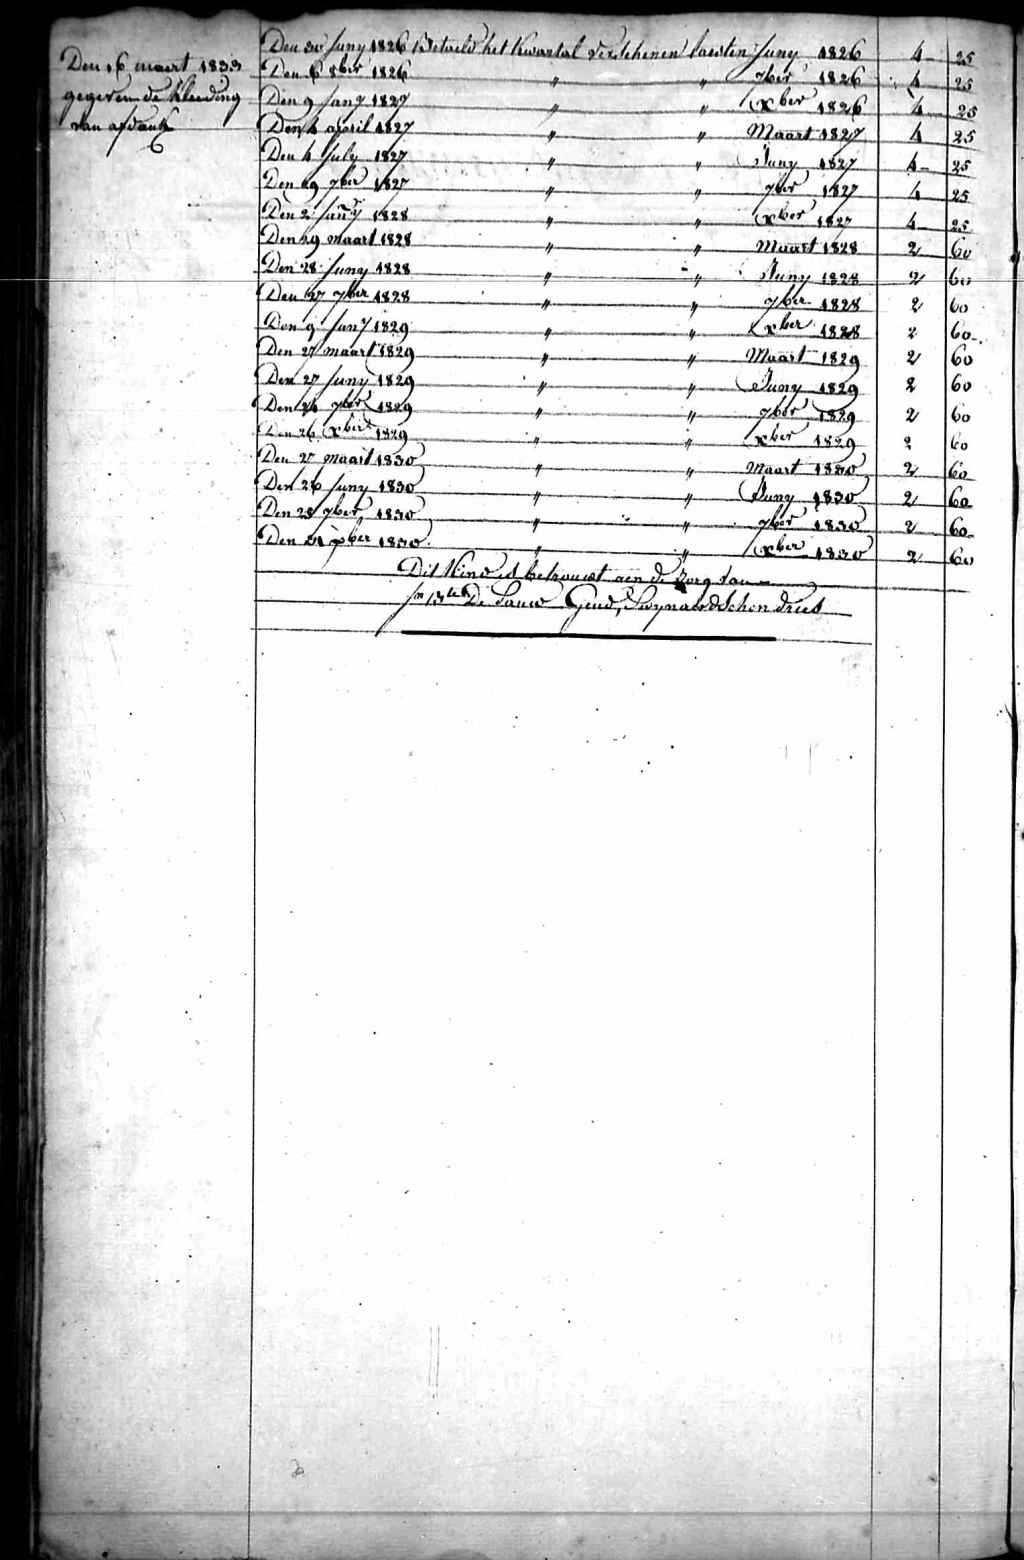 Den 16 maert 1833
gegeven de kleeding
van afdank
Den 30 Juny 1826 Betaeld het Kwartal verschenen laesten Juny 1826 4 25
Den 6 8ber 1826 " " 7ber 1826 4 25
Den 9 Jany 1827 " " xber 1826 4 25
Den 4 april 1827 " " Maart 1827 4 25
Den 4 July 1827 " " Juny 1827 4 25
Den 29 7ber 1827 " " 7ber 1827 4 25
Den 2 Jany 1828 " " xber 1827 4 25
Den 29 maart 1828 " " Maart 1828 2 60
Den 28 Juny 1828 " " Juny 1828 2 60
Den 27 7ber 1828 " " 7ber 1828 2 60
Den 9 Jany 1829 " " xber 1828 2 60
Den 27 maart 1829 " " Maart 1829 2 60
Den 27 Juny 1829 " " Juny 1829 2 60
Den 26 7ber 1829 " " 7ber 1829 2 60
Den 26 xber 1829 " " xber 1829 2 60
Den 27 maart 1830 " " Maart 1830 2 60
Den 26 Juny 1830 " " Juny 1830 2 60
Den 25 7ber 1830 " " 7ber 1830 2 60
Den 31 xber 1830 " " xber 1830 2 60
Dit Kind is betrouwt aen de zorg van
De Pauw Gend, Swynaerdschen dries